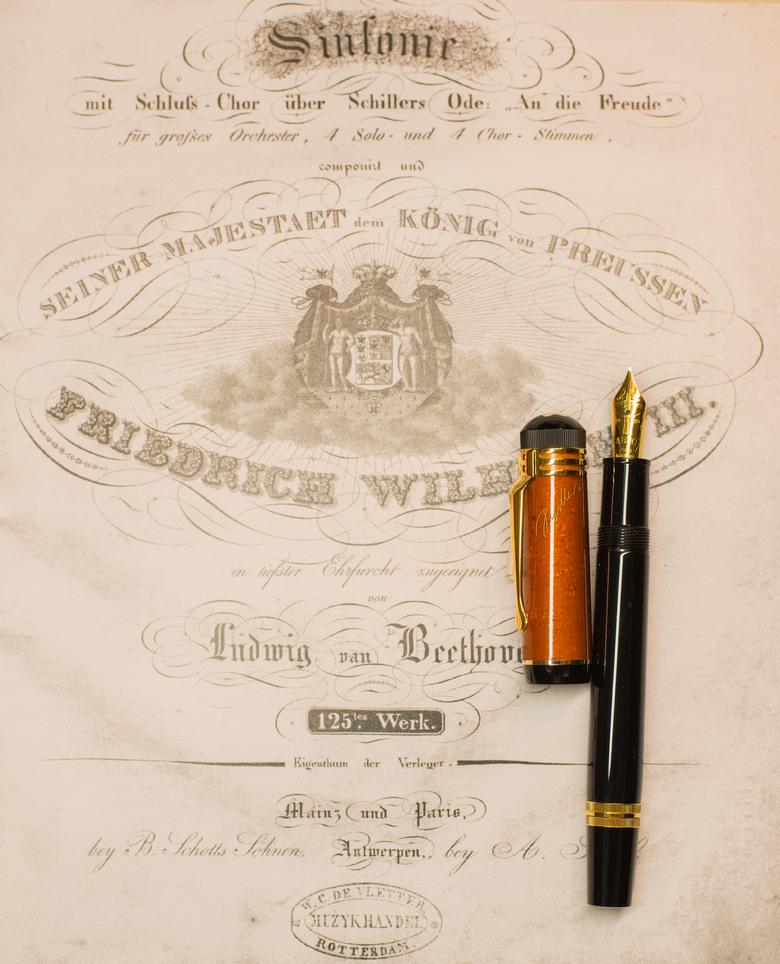 Sinfonie
mit Schluſs-Chor über Schillers Ode: „An die Freude"
für groſses Orchester, 4 Solo- und 4 Chor-Stimmen,
componirt und
SEINER MAJESTAET dem KÖNIG von PREUSSEN
FRIEDRICH WILH III.
in tiefster Ehrfurcht zugeeignet
von
Ludwig van Beethove
125tes Werk.
Eigenthum der Verleger.
Mainz und Paris,
bey B. Schotts Söhnen. Antwerpen, bey A.
W. C. DE VLETTER
MUZYKHANDEL
ROTTERDAM.